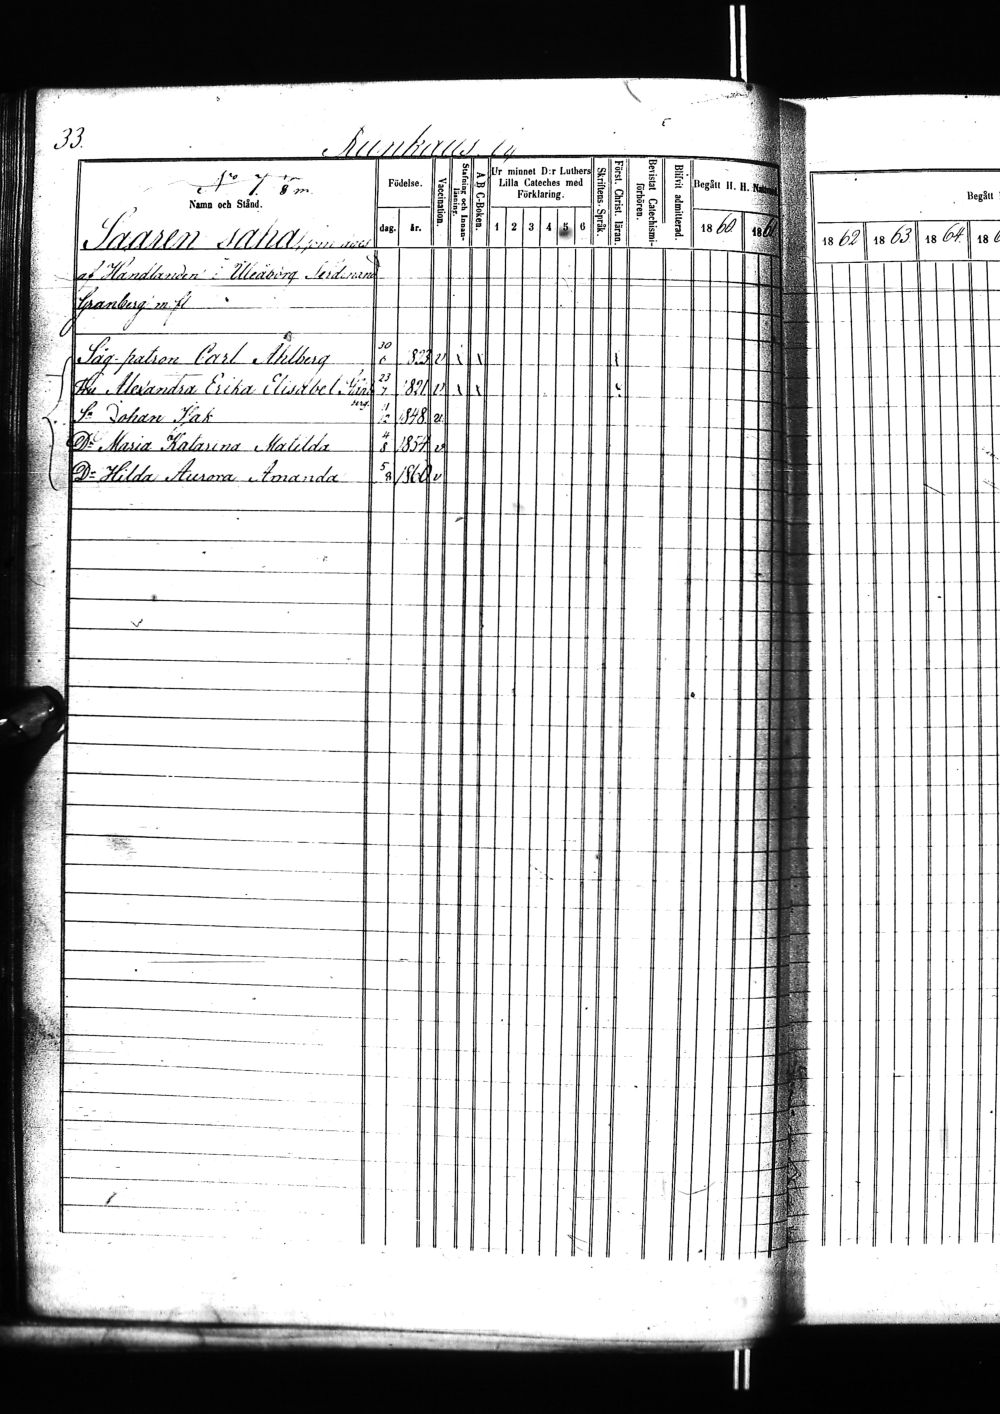 33.
Runkaus
No 7. 1/8 m.
Namn och Stånd.
Födelse.
dag.
år.
Vaccination.
Stafning och Innanläsning.
A B C-Boken.
Ur minnet D:r Luthers
Lilla Cateches med
Förklaring.
1 2 3 4 5 6
Skriftens-Språk
Först. Christ. läran.
Bevistat Catechismi-förhören.
Blifvit admitterad.
Begått H. H. Nattvard
1860
Begått
1862 1863 1864
Saaren saha som äges
af Handlanden i Uleåborg Ferdinand
Granberg m. fl
Såg-patron Carl Ahlberg 30 823 v
Hu Alexandra Erika Elisabet 23/7 1821 v
Sn Johan Isak 1848 v
Dr Maria Katarina Matilda 4/8 1854 v
Dr Hilda Aurora Amanda 5/8 1860 v